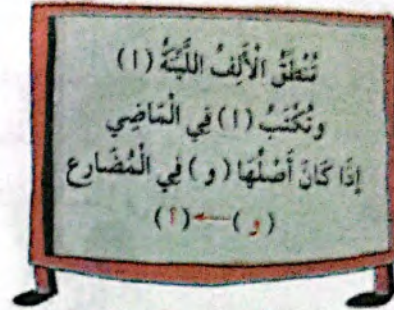 تُنْطَقُ الْأَلِفُ اللَّيِّنَةُ (ا)
وتُكْتَبُ (ا) فِي الْمَاضِي
إِذَا كَانَ أَصْلُهَا (و) فِي الْمُضَارِع
(و) ← (ا)